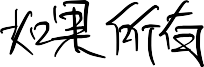 如果所有